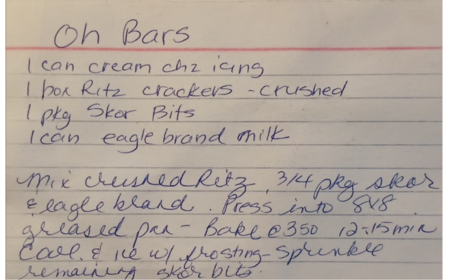 Oh Bars
1 can cream chz icing
1 box Ritz crackers - crushed
1 pkg Skor Bits
1 can eagle brand milk
Mix crushed Ritz, 3/4 pkg skor
& eagle brand. Press into 8x8
greased pan - Bake @ 350 12-15 min
Cool & ice w/ frosting - Sprinkle
remaining skor bits.